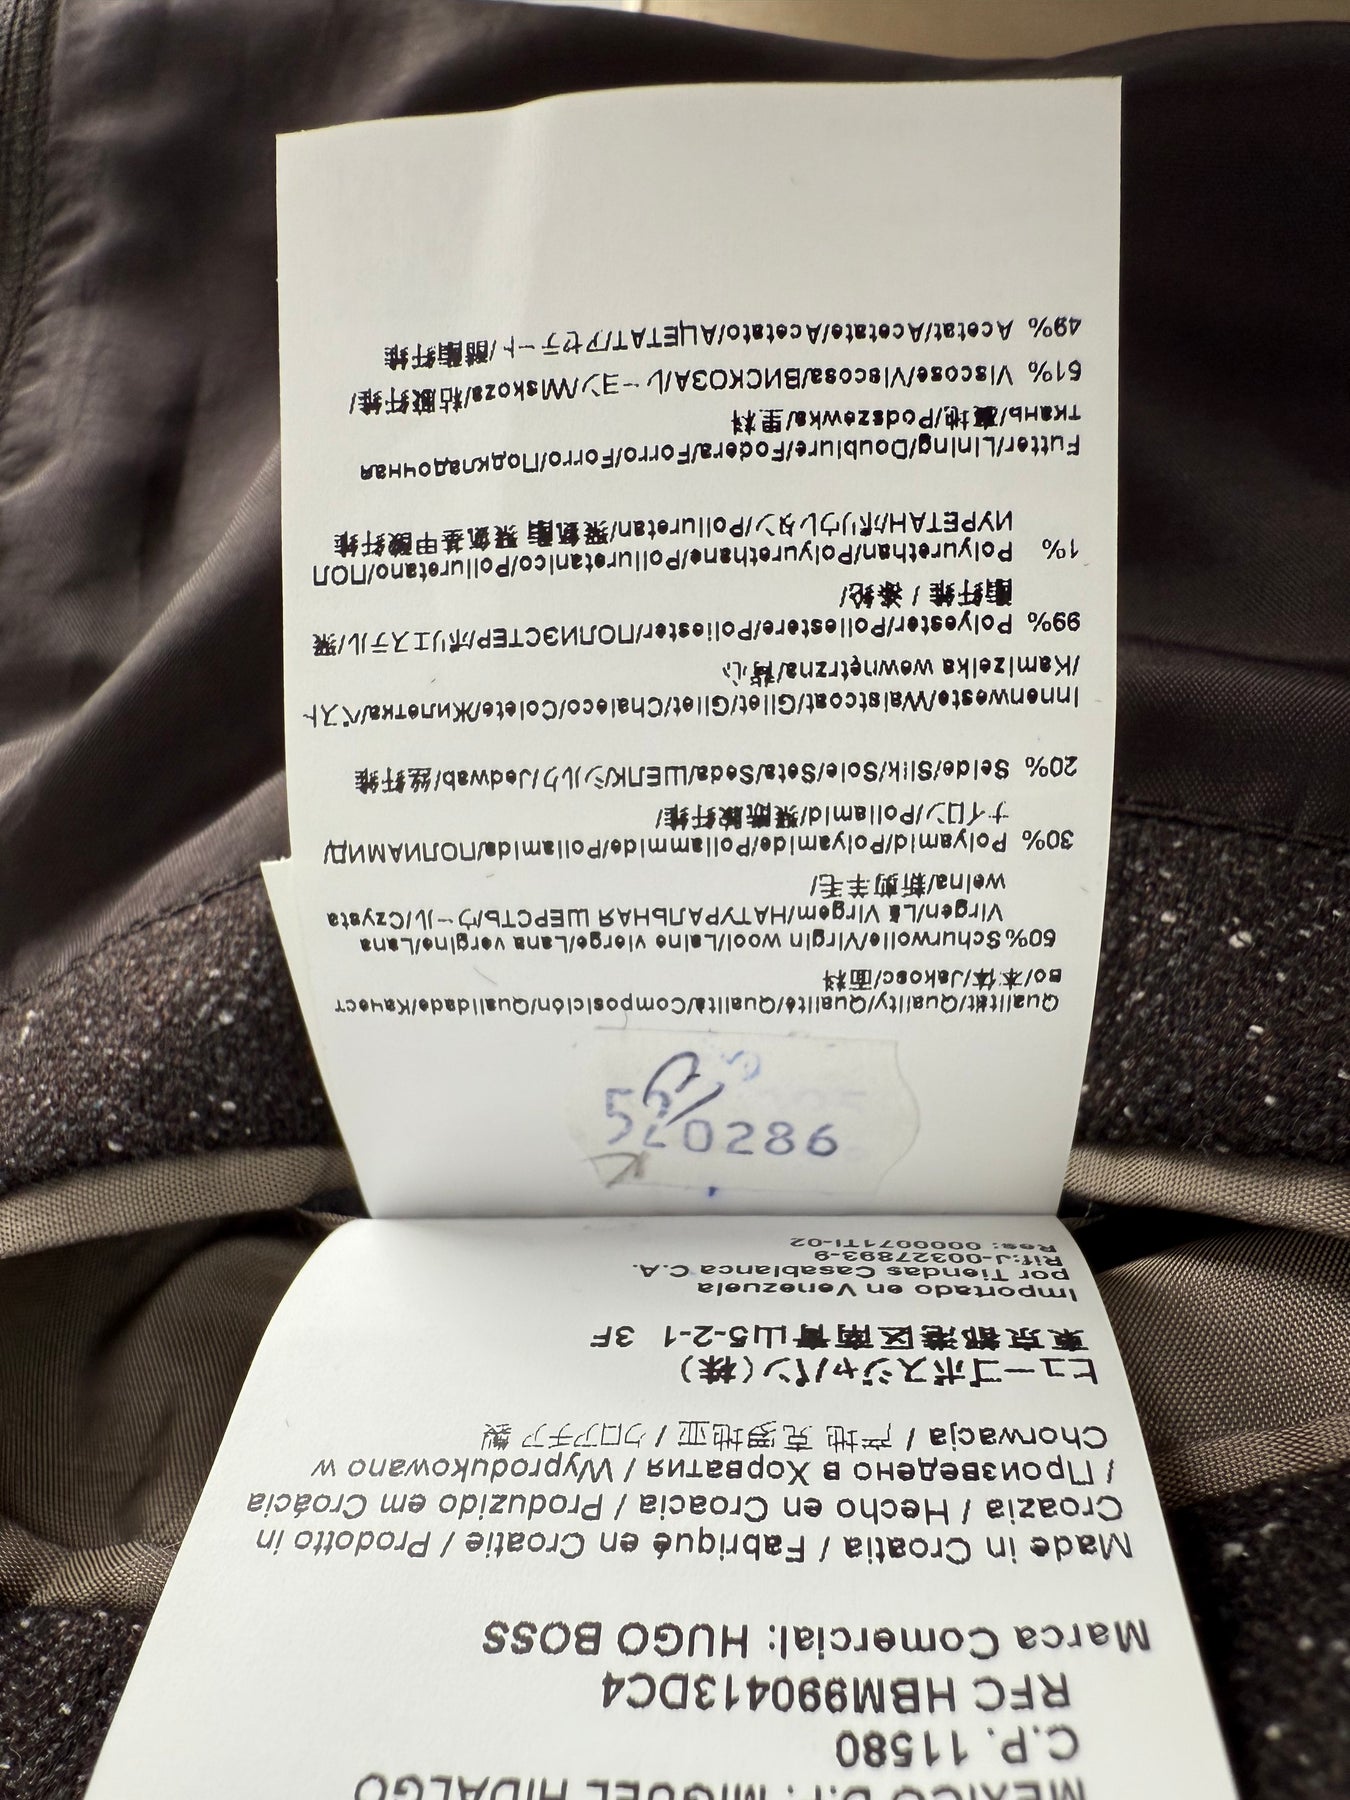 MEXICO D.F. MIGUEL HIDALGO
C.P. 11580
RFC HBM990413DC4
Marca Comercial: HUGO BOSS
Made in Croatia / Fabriqué en Croatie / Prodotto in
Croazia / Hecho en Croacia / Produzido em Croácia
/ Произведено в Хорватия / Wyprodukowano w
Chorwacja / 产地 克罗地亚 / クロアチア 製
ヒューゴボスジャパン(株)
東京都港区南青山5-2-1 3F
Importado en Venezuela
por Tiendas Casablanca C.A.
Rif:J-00327893-9
Res: 0000071TI-02
520286
Qualität/Quality/Qualité/Qualità/Composición/Qualidade/Качест
во/本体/Jakosc/面料
50%Schurwolle/Virgin wool/Laine vierge/Lana vergine/Lana
Virgen/Lã Virgem/НАТУРАЛЬНАЯ ШЕРСТЬ/ウール/Czysta
welna/新剪羊毛/
30% Polyamid/Polyamide/Poliammide/Poliamida/ПОЛИАМИД/
ナイロン/Poliamid/聚酰胺纤维/
20% Seide/Silk/Soie/Seta/Seda/ШЕЛК/シルク/Jedwab/丝纤维
Innenweste/Waistcoat/Gilet/Gilet/Chaleco/Colete/Жилетка/ベスト
/Kamizelka wewnętrzna/背心
99% Polyester/Poliestere/Poliester/ПОЛИЭСТЕР/ポリエステル/聚
酯纤维 / 涤纶/
1% Polyurethan/Polyurethane/Poliuretanico/Poliuretano/ПОЛ
ИУРЕТАН/ポリウレタン/Poliuretan/聚氨酯 聚氨基甲酸纤维
Futter/Lining/Doublure/Fodera/Forro/Forro/Подкладочная
ткань/裏地/Podszewka/里料
51% Viscose/Viscosa/ВИСКОЗА/レーヨン/Wiskoza/粘胶纤维/
49% Acetat/Acetate/Acetato/АЦЕТАТ/アセテート/醋酯纤维